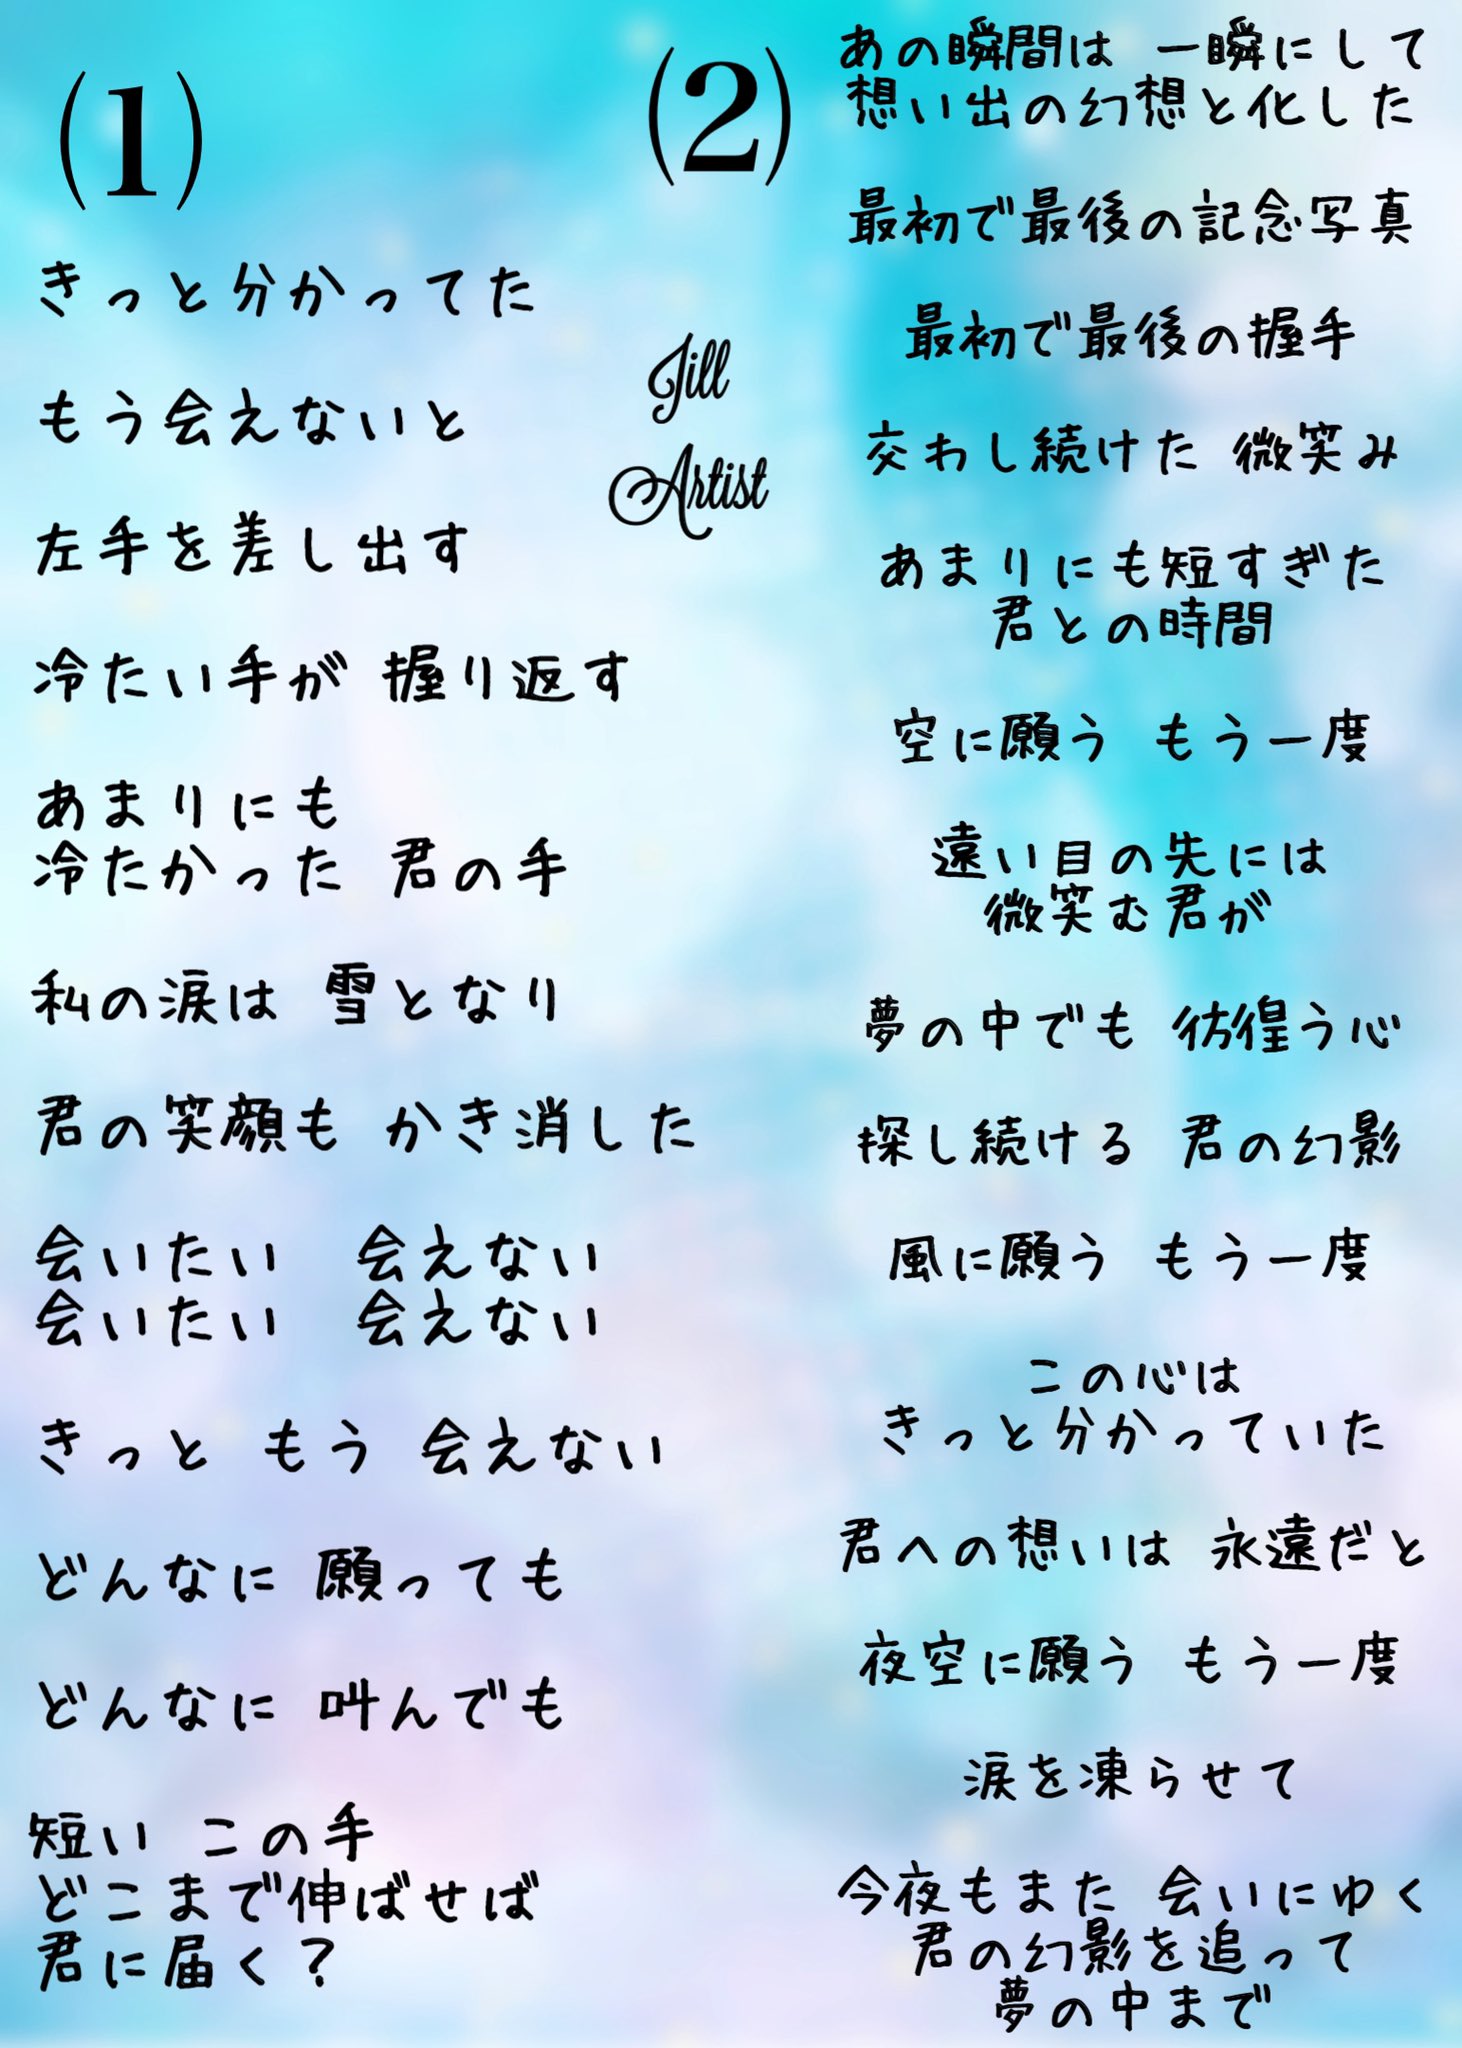 (1)
きっと分かってた
もう会えないと
左手を差し出す
冷たい手が 握り返す
あまりにも
冷たかった 君の手
私の涙は 雪となり
君の笑顔も かき消した
会いたい 会えない
会いたい 会えない
きっと もう 会えない
どんなに 願っても
どんなに 叫んでも
短い この手
どこまで伸ばせば
君に届く？
Jill
Artist
(2)
あの瞬間は 一瞬にして
想い出の幻想と化した
最初で最後の記念写真
最初で最後の握手
交わし続けた 微笑み
あまりにも短すぎた
君との時間
空に願う もう一度
遠い目の先には
微笑む君が
夢の中でも 彷徨う心
探し続ける 君の幻影
風に願う もう一度
この心は
きっと分かっていた
君への想いは 永遠だと
夜空に願う もう一度
涙を凍らせて
今夜もまた 会いにゆく
君の幻影を追って
夢の中まで